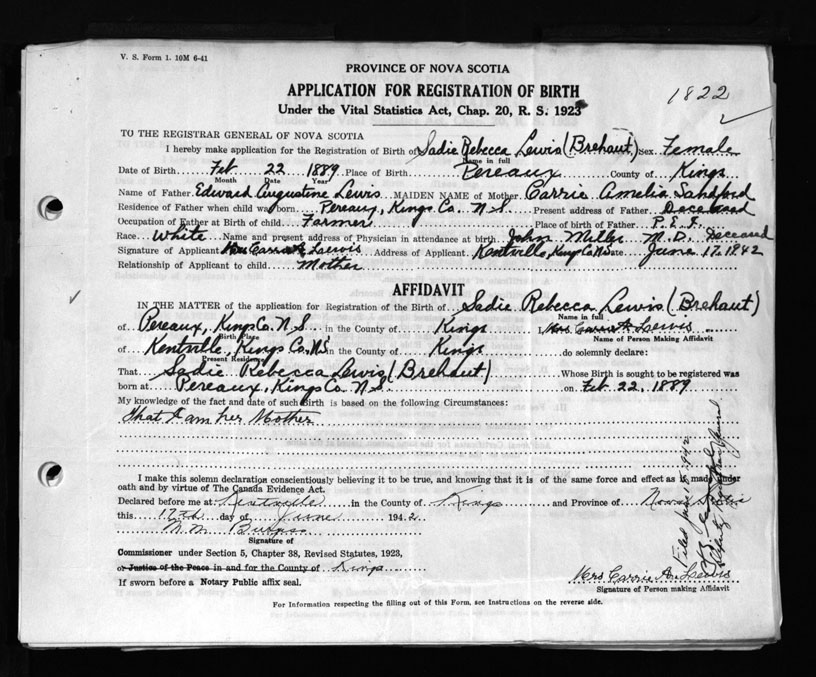 V. S. Form 1. 10M 6-41
PROVINCE OF NOVA SCOTIA
APPLICATION FOR REGISTRATION OF BIRTH
1822
Under the Vital Statistics Act, Chap. 20, R. S. 1923
TO THE REGISTRAR GENERAL OF NOVA SCOTIA
I hereby make application for the Registration of Birth of Sadie Rebecca Lewis (Brehaut) Sex Female
Name in full
Date of Birth Feb 22 1889 Place of Birth Pereaux County of Kings
Month Date Year
Name of Father Edward Augustine Lewis MAIDEN NAME of Mother Carrie Amelia Sandford
Residence of Father when child was born Pereaux, Kings Co. N.S. Present address of Father Deceased
Occupation of Father at Birth of child Farmer Place of birth of Father P.E.I.
Race White Name and present address of Physician in attendance at birth John Miller M.D. Deceased
Signature of Applicant Mrs Carrie A Lewis Address of Applicant Kentville, Kings Co NS Date June 17, 1942
Relationship of Applicant to child Mother
AFFIDAVIT
IN THE MATTER of the application for Registration of the Birth of Sadie Rebecca Lewis (Brehaut)
Name in full
of Pereaux, Kings Co. N.S. in the County of Kings I, Mrs Carrie A Lewis
Birth Place Name of Person Making Affidavit
of Kentville, Kings Co. NS in the County of Kings do solemnly declare:
Present Residence
That Sadie Rebecca Lewis (Brehaut) Whose Birth is sought to be registered was
born at Pereaux, Kings Co. N.S. on Feb 22, 1889
My knowledge of the fact and date of such Birth is based on the following Circumstances:
That I am her Mother
I make this solemn declaration conscientiously believing it to be true, and knowing that it is of the same force and effect as if made under
oath and by virtue of The Canada Evidence Act.
Declared before me at Kentville in the County of Kings and Province of Nova Scotia
this 17th day of June 1942
M. M. Burgess
Signature of
Commissioner under Section 5, Chapter 38, Revised Statutes, 1923,
or Justice of the Peace in and for the County of Kings
If sworn before a Notary Public affix seal.
Mrs Carrie A. Lewis
Signature of Person making Affidavit
For Information respecting the filling out of this Form, see Instructions on the reverse side.
Filed 1942